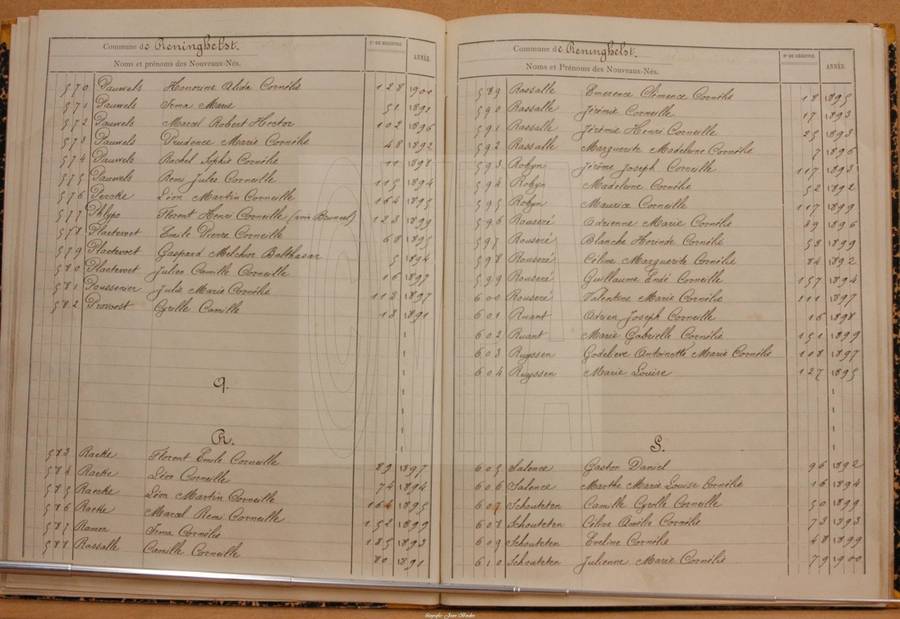 Commune de Reninghelst.
Noms et prénoms des Nouveaux-Nés.
Nº DE REGISTRE
ANNÉE.
570 Pauwels Honorine Alida Cornélie 128 1900
571 Pauwels Irma Marie 51 1891
572 Pauwels Marcel Robert Hector 102 1896
573 Pauwels Prudence Marie Cornélie 48 1892
574 Pauwels Rachel Sophie Cornélie 11 1898
575 Pauwels Remi Jules Corneille 115 1894
576 Léon Martin Corneille 164 1895
577 Phlypo Florent Henri Corneille 123 1899
578 Plaetevoet Emile Pierre Corneille 68 1895
579 Plaetevoet Gaspard Melchior Balthasar 5 1894
580 Plaetevoet Julien Camille Corneille 16 1897
581 Julie Marie Cornélie 112 1897
582 Provoost Cyrille Camille 18 1891
Q.
R.
583 Raeke Florent Emile Corneille 89 1897
584 Raeke Léon Corneille 74 1894
585 Raecke Léon Martin Corneille 164 1895
586 Raeke Marcel Remi Corneille 152 1899
587 Ramon Irma Cornélie 185 1893
588 Rassalle Camille Corneille 80 1891
Commune de Reninghelst.
Noms et Prénoms des Nouveaux-Nés.
Nº DE REGISTRE.
ANNÉE.
589 Rassalle Emerence Clémence Cornélie 18 1895
590 Rassalle Jérémie Corneille 17 1893
591 Rassalle Jérémie Henri Corneille 25 1898
592 Rassalle Marguerite Madeleine Cornélie 7 1896
593 Robyn Jérôme Joseph Corneille 117 1893
594 Robyn Madeleine Cornélie 52 1892
595 Robyn Maurice Corneille 117 1899
596 Rouseré Adrienne Marie Cornélie 89 1896
597 Rouseré Blanche Cornélie 58 1899
598 Rouseré Céline Marguerite Cornélie 84 1892
599 Rouseré Guillaume Corneille 157 1894
600 Rouseré Valentine Marie Cornélie 111 1897
601 Ruant Adrien Joseph Corneille 16 1898
602 Ruant Marie Gabrielle Cornélie 151 1899
603 Ruyssen Godelieve Antoinette Marie Cornélie 108 1897
604 Ruyssen Marie Louise 127 1895
S.
605 Salence Gaston Daniel 96 1892
606 Salence Marthe Marie Louise Cornélie 16 1894
607 Schouteten Camille Cyrille Corneille 50 1899
608 Schouteten Céline Amélie Cornélie 73 1893
609 Schouteten Eveline Cornélie 48 1899
610 Schouteten Julienne Marie Cornélie 79 1900